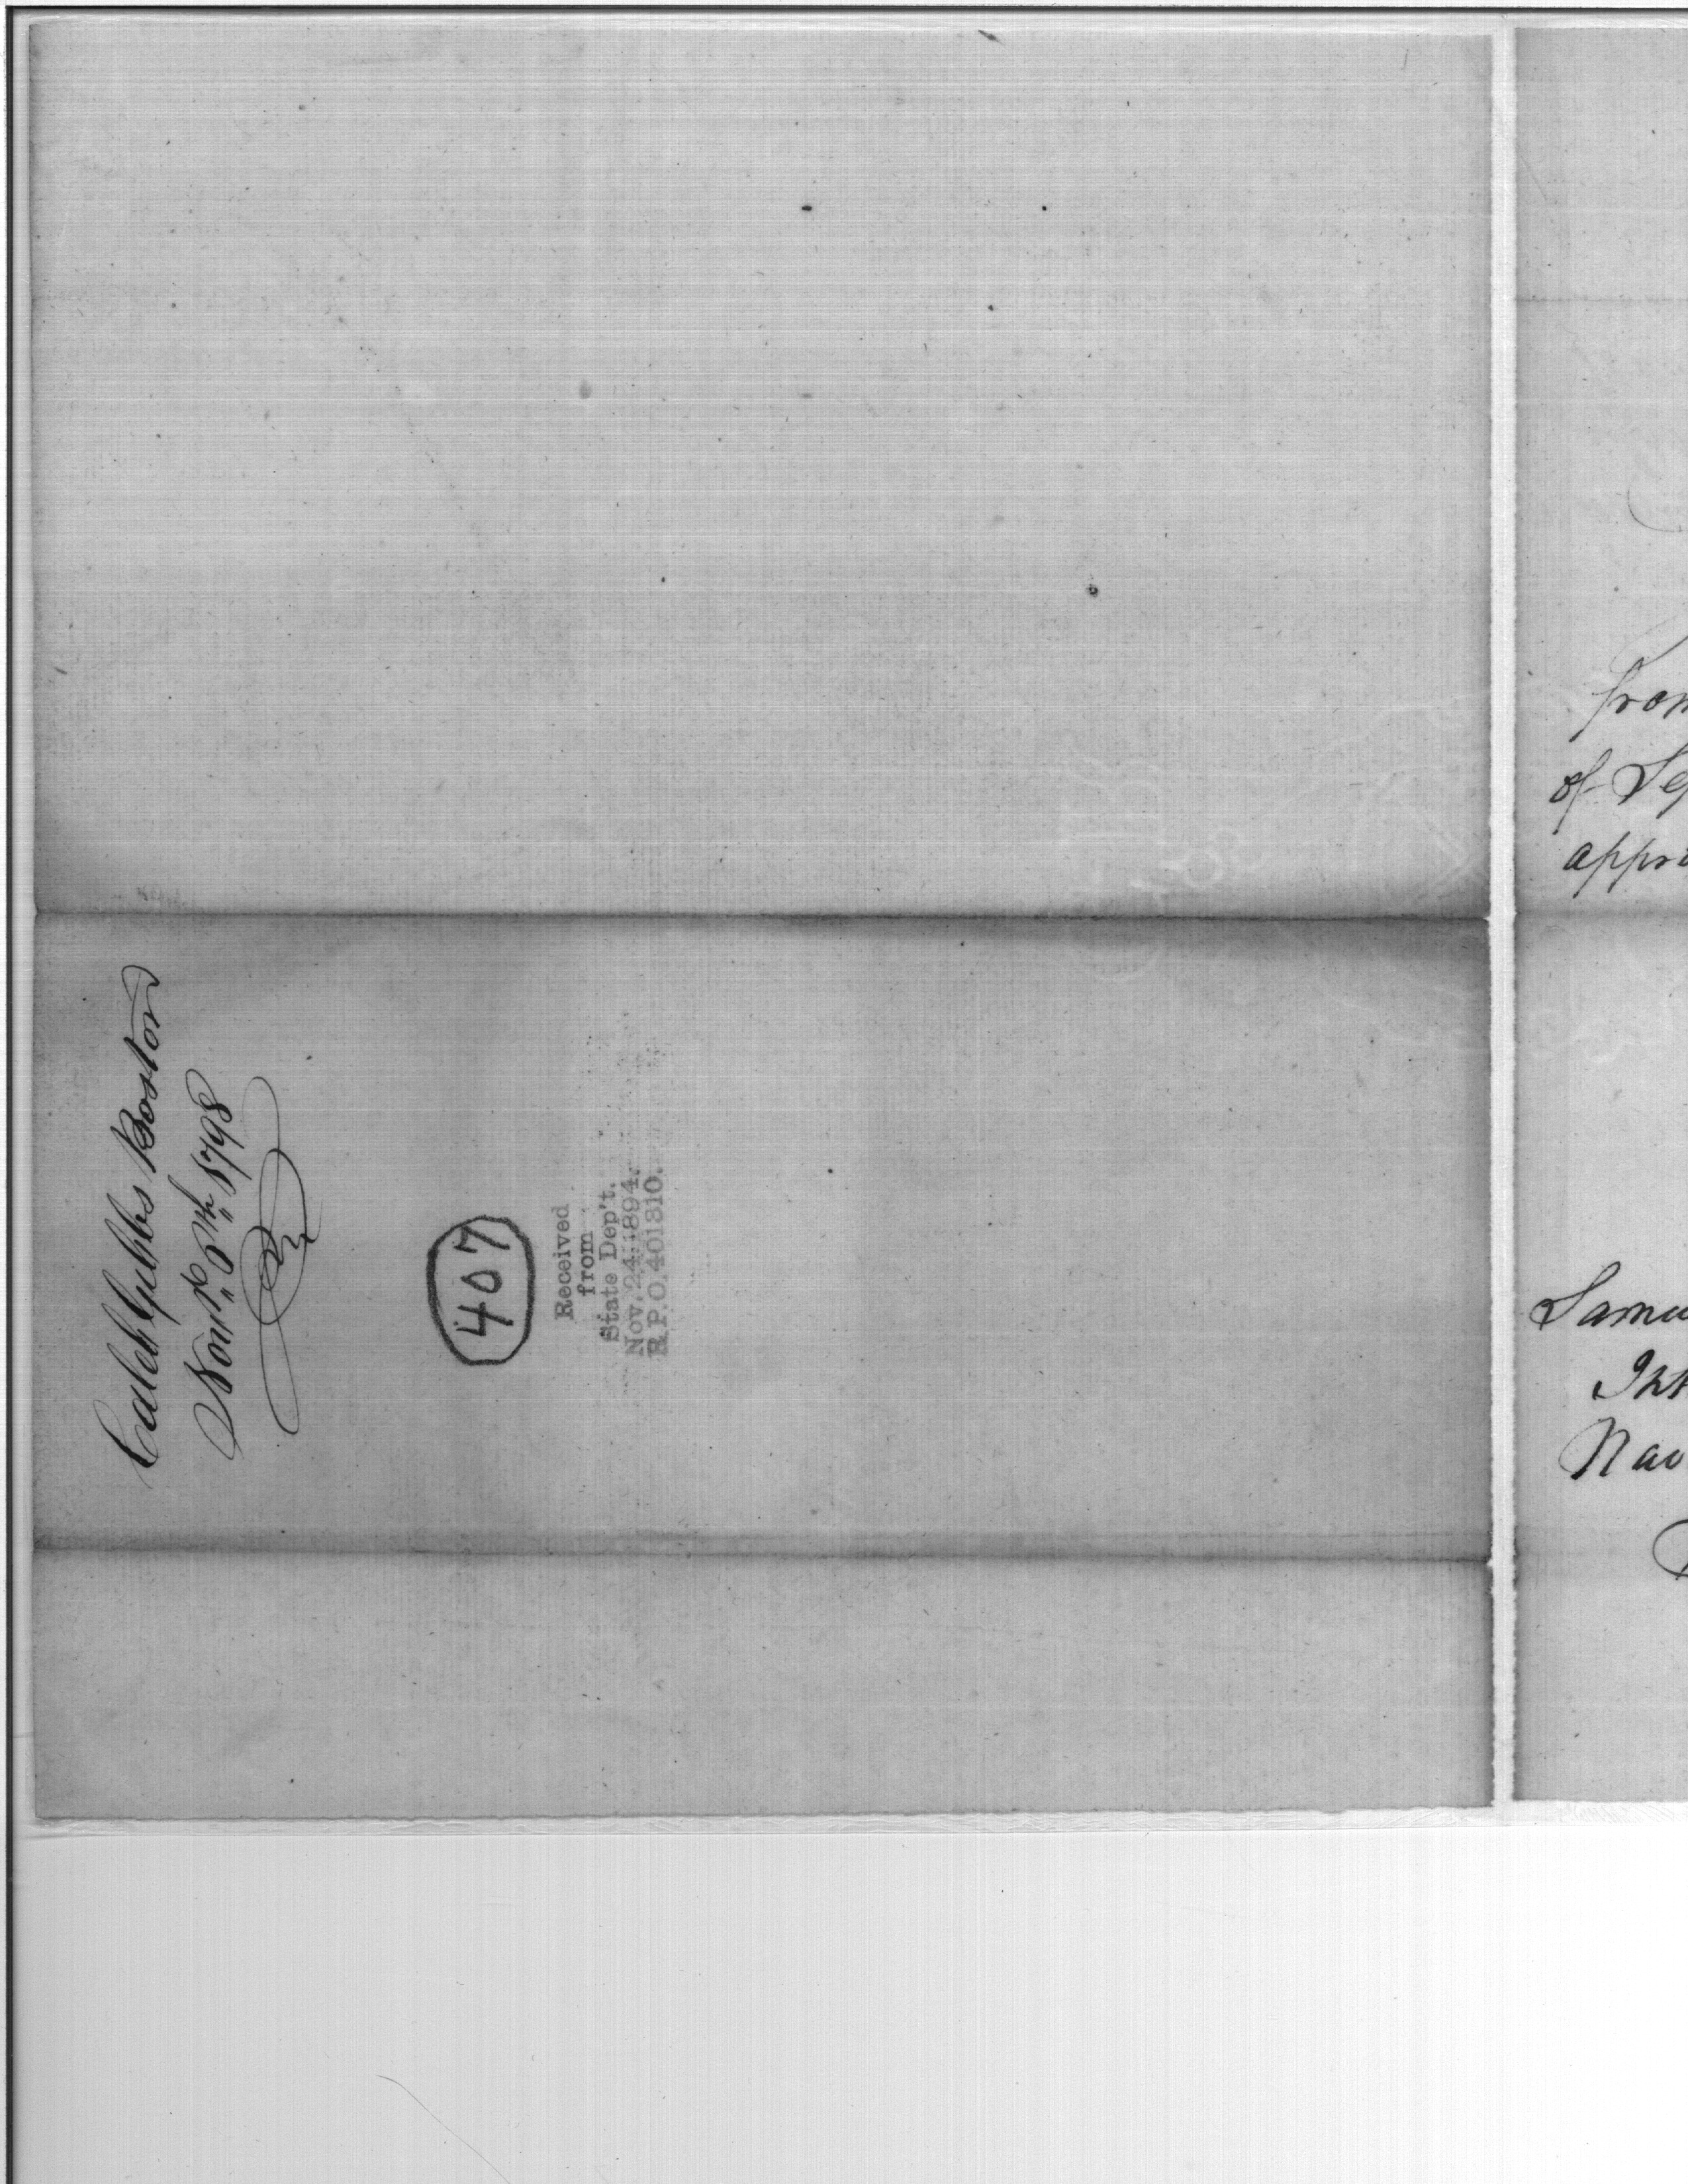 Caleb Gibbs Boston
Novr. 6th 1798
407
Received
from
State Dep't.
Nov. 24, 1894.
R.P.O. 401310.
from
of Se
appro
Samu
Nav